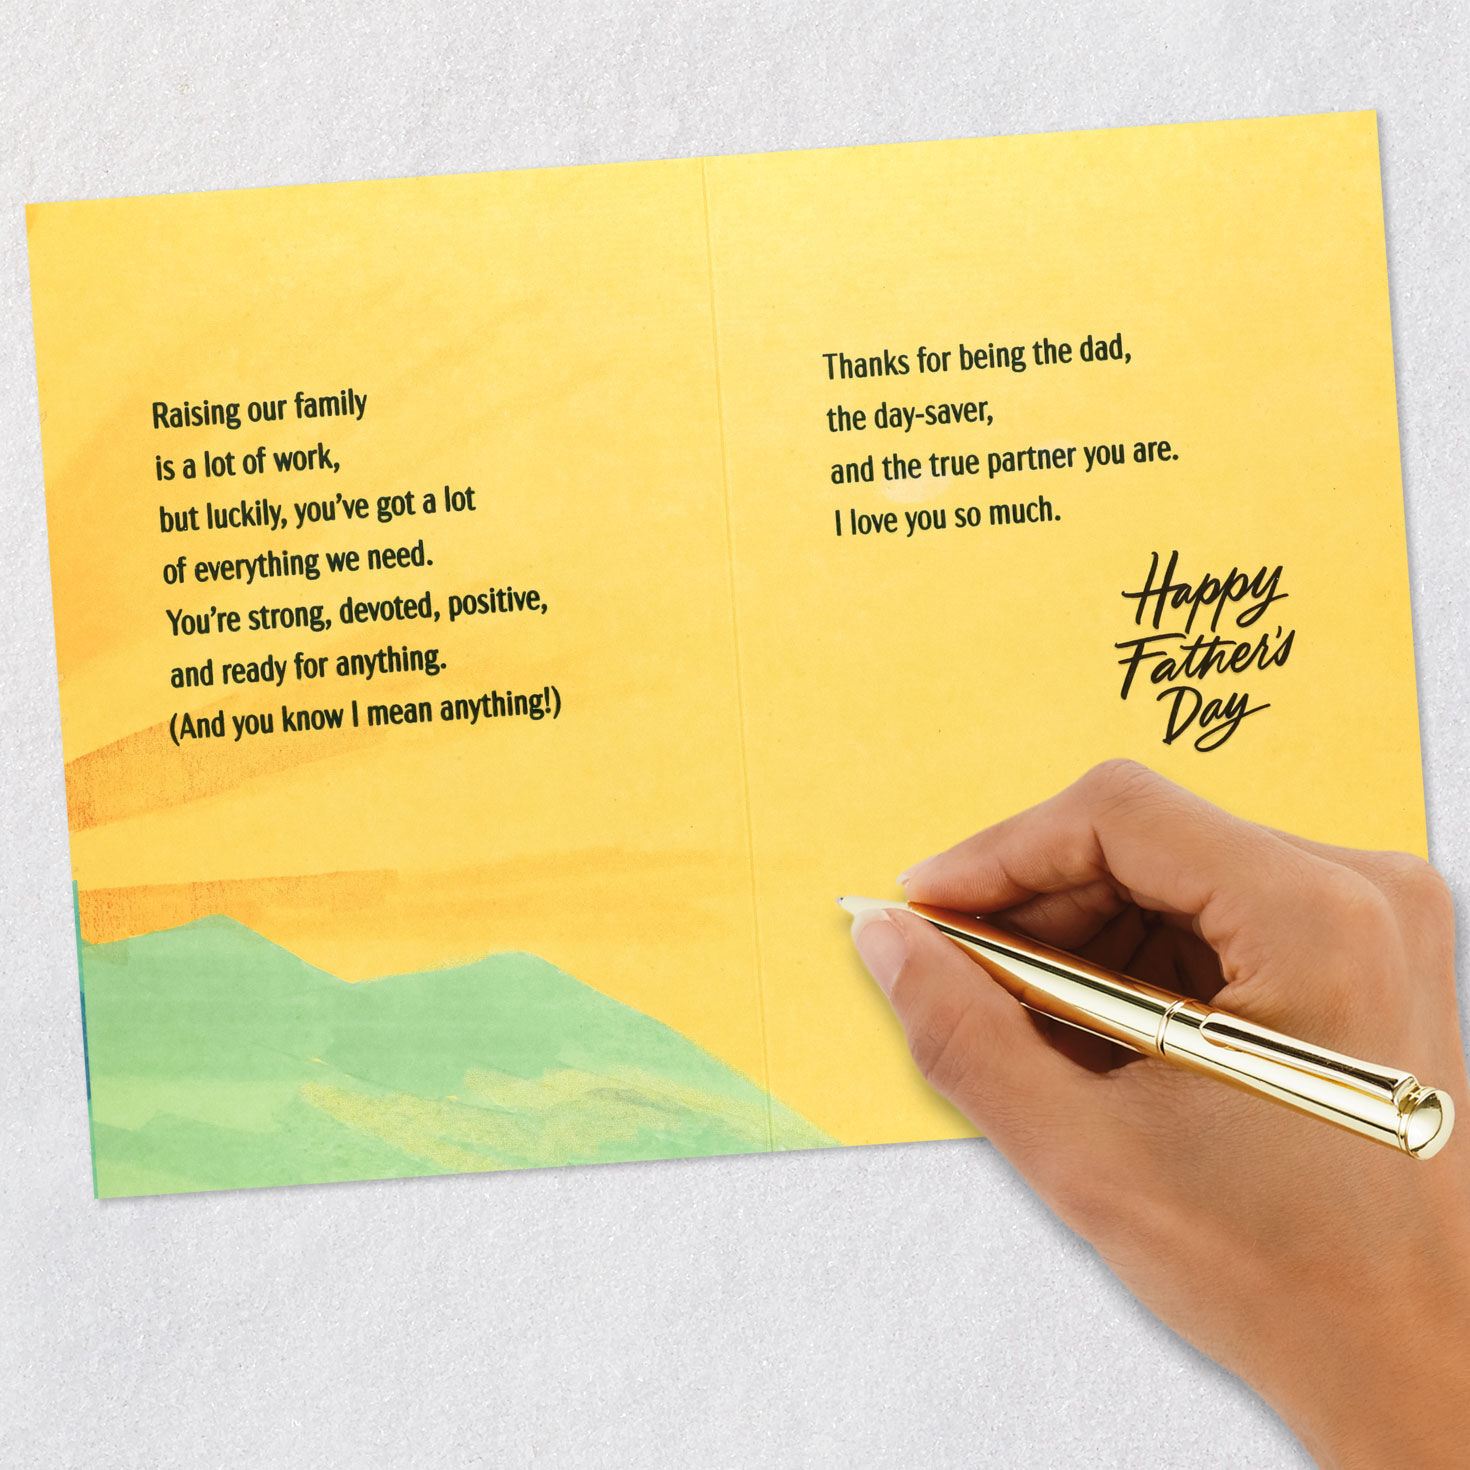 Raising our family
is a lot of work,
but luckily, you've got a lot
of everything we need.
You're strong, devoted, positive,
and ready for anything.
(And you know I mean anything!)
Thanks for being the dad,
the day-saver,
and the true partner you are.
I love you so much.
Happy
Father's
Day